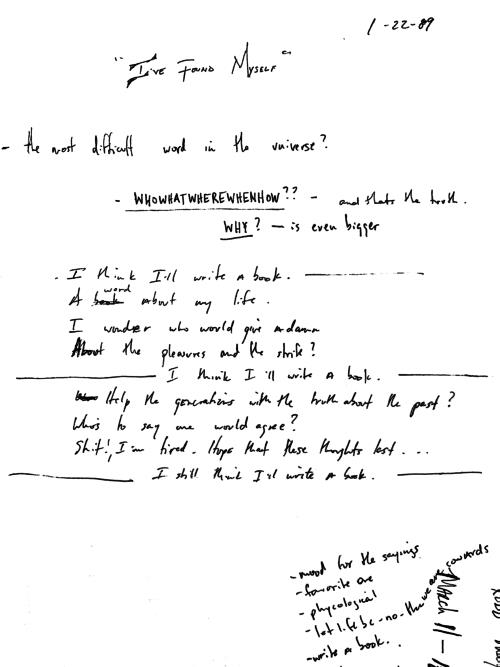 1-22-89
"I've Found Myself"
- the most difficult word in the universe?
- WHOWHATWHEREWHENHOW?? - and thats the truth.
WHY? - is even bigger
. I think I'll write a book.
word
A book about my life.
I wonder who would give a damn
About the pleasures and the strife?
I think I'll write a book.
Help the generations with the truth about the past?
Who's to say one would agree?
Shit!, I'm tired. Hope that these thoughts last...
I still think I'll write a book.
- mood for the sayings
- favorite one
- phycological
- let life be - no - then we are cowards
- write a book.
MARCH 11 -